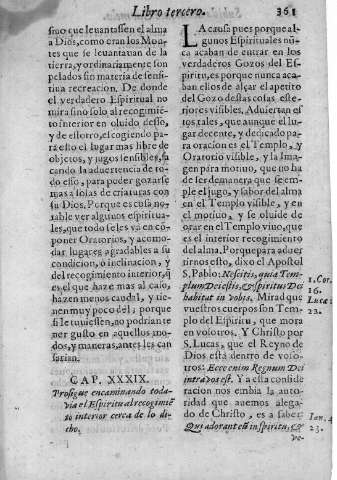 Libro tercero. 361
sino que leuantassen el alma
a Dios, como eran los Mon-
tes que se leuantauan de la
tierra, y ordinariamente son
pelados sin materia de sensi-
tiua recreacion. De donde
el verdadero Espiritual no
mira sino solo al recogimiẽ-
to interior en oluido desso, y
de essotro, escogiendo pa-
ra esto el lugar mas libre de
objetos, y jugos sensibles, sa
cando la aduertencia de to-
do esso, para poder gozarse
mas a solas de criaturas con
su Dios. Porque es cosa no-
table ver algunos espiritua-
les, que todo se les va en cõ-
poner Oratorios, y acomo-
dar lugares agradables a su
condicion, o inclinacion, y
del recogimiento interior, q̃
es el que haze mas al caso,
hazen menos caudal, y tie-
nen muy poco del; porque
si le tuuiessen, no podrian te
ner gusto en aquellos mo-
dos, y maneras, antes les can
sarian.
CAP. XXXIX.
Prosigue encaminando toda-
via el Espiritu al recogimiẽ
to interior cerca de lo di-
cho.
LA causa pues porque al-
gunos Espirituales nũ-
ca acaban de entrar en los
verdaderos Gozos del Es-
piritu, es porque nunca aca-
ban ellos de alçar el apetito
del Gozo destas cosas exte-
riores visibles. Aduiertan es
tos tales, que aunque el lu-
gar decente, y dedicado pa-
ra oracion es el Templo, y
Oratorio visible, y la Ima-
gen para motiuo, que no ha
de ser de manera que se em-
ple el jugo, y sabor del alma
en el Templo visible, y en
el motiuo, y se oluide de
orar en el Templo viuo, que
es el interior recogimiento
del alma. Porque para aduer
tirnos esto, dixo el Apostol
S. Pablo: Nescitis, quia Tem-
plum Dei estis, & Spiritus Dei
habitat in vobis. Mirad que
vuestros cuerpos son Tem-
plo del Espiritu, que mora
en vosotros. Y Christo por
S. Lucas, que el Reyno de
Dios está dentro de voso-
tros: Ecce enim Regnum Dei
intra vos est. Y a esta conside
racion nos embia la auto-
ridad que auemos alega-
do de Christo, es a saber:
Qui adorant eum in spiritu, &
ve-
1. Cor.
16.
Lucæ
22.
Ioan. 4
23.